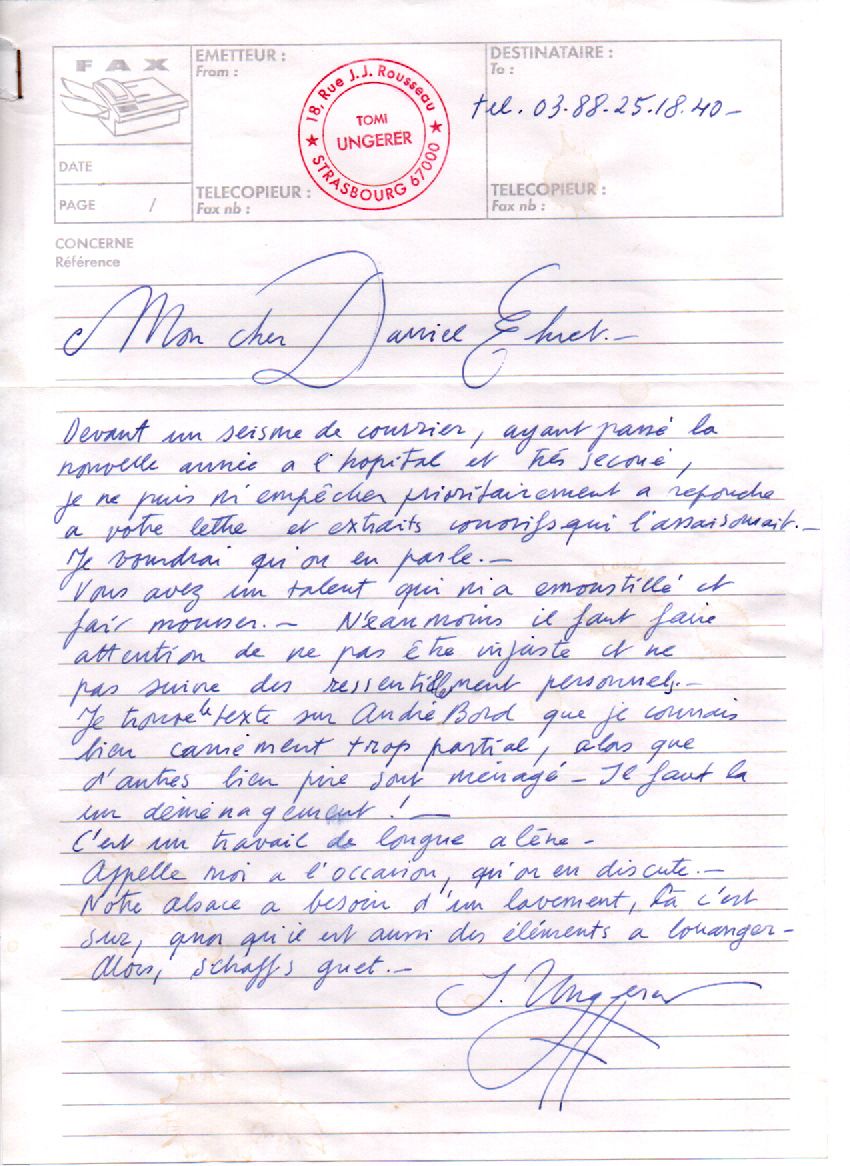 FAX
EMETTEUR :
From :
18, Rue J.J. Rousseau
TOMI
UNGERER
★ STRASBOURG 67000 ★
DESTINATAIRE :
To :
tel. 03.88.25.18.40 –
DATE
PAGE /
TELECOPIEUR :
Fax nb :
TELECOPIEUR :
Fax nb :
CONCERNE
Référence
Mon cher Daniel Ehret. –
Devant un seisme de courrier, ayant passé la
nouvelle année a l'hopital et très secoué,
je ne puis m'empêcher prioritairement a repondre
a votre lettre et extraits corrosifs qui l'assaisonnait. –
Je voudrai qu'on en parle. –
Vous avez un talent qui m'a emoustillé et
fait mousser. – Néeanmoins il faut faire
attention de ne pas être injuste et ne
pas suivre des ressentiment personnels. –
Je trouve le texte sur André Bord que je connais
bien carrément trop partial, alors que
d'autres bien pire sont ménagé – Il faut la
un déménagement ! –
C'est un travail de longue alène –
Appelle moi a l'occasion, qu'on en discute. –
Notre alsace a besoin d'un lavement, ça c'est
sur, quoi qu'il est aussi des éléments a louanger –
Alors, schaffs guet. –
T. Ungerer